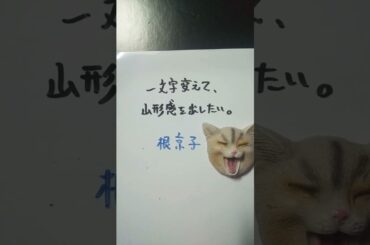 一文字変えて、
山形感を出したい。
根京子